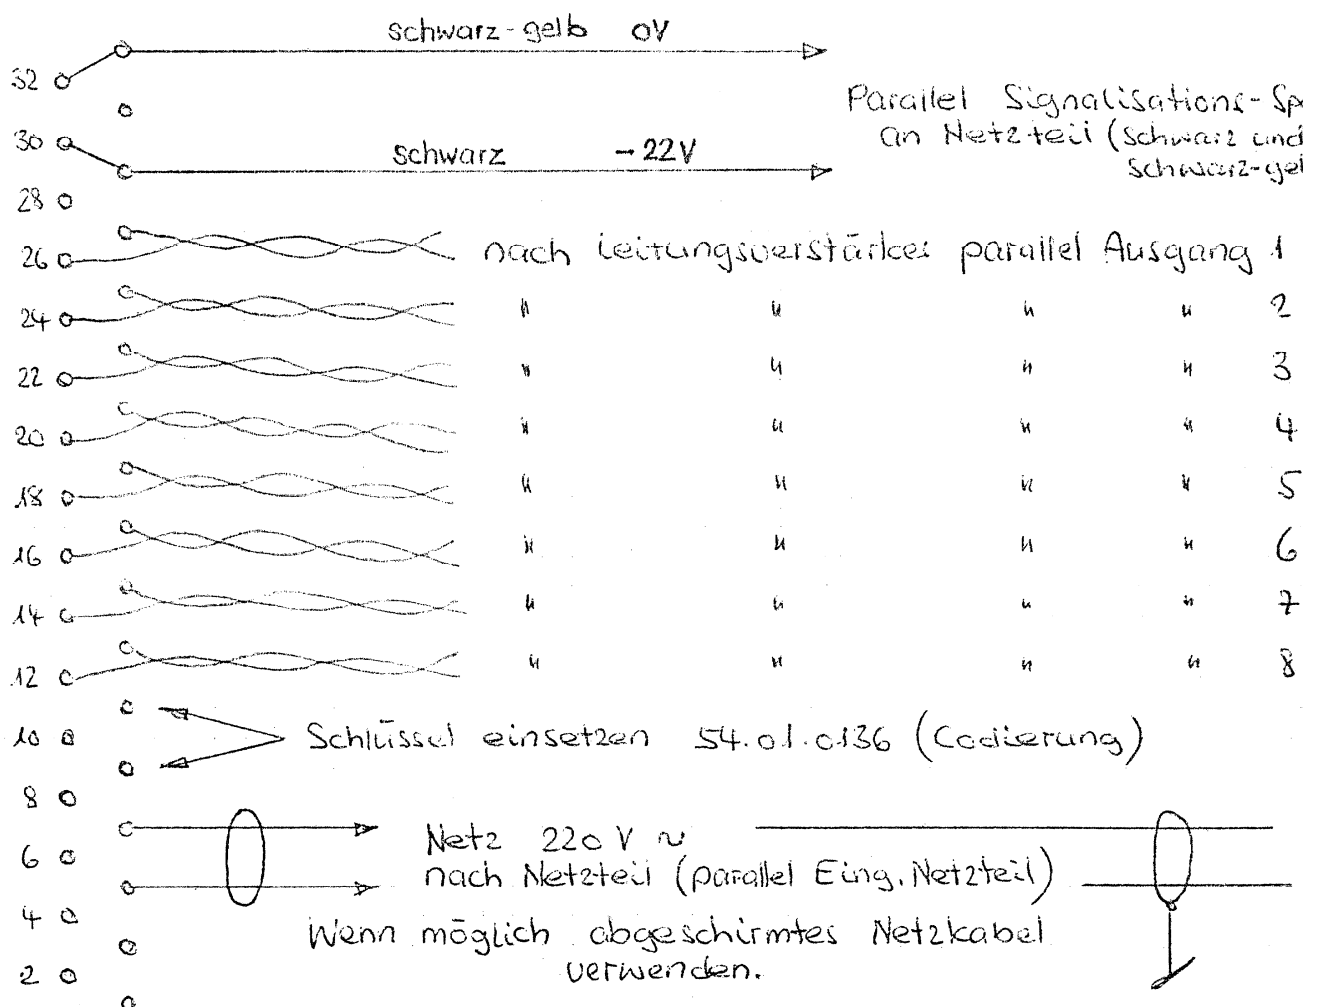 schwarz-gelb 0V
32
Parallel Signalisations-Sp
30
an Netzteil (schwarz und
schwarz -22V
schwarz-gel
28
26 nach Leitungsverstärker parallel Ausgang 1
24 " " " " 2
22 " " " " 3
20 " " " " 4
18 " " " " 5
16 " " " " 6
14 " " " " 7
12 " " " " 8
10 Schlüssel einsetzen 54.01.0136 (Codierung)
8
Netz 220 V ~
6
nach Netzteil (parallel Eing. Netzteil)
4
Wenn möglich abgeschirmtes Netzkabel
2 verwenden.